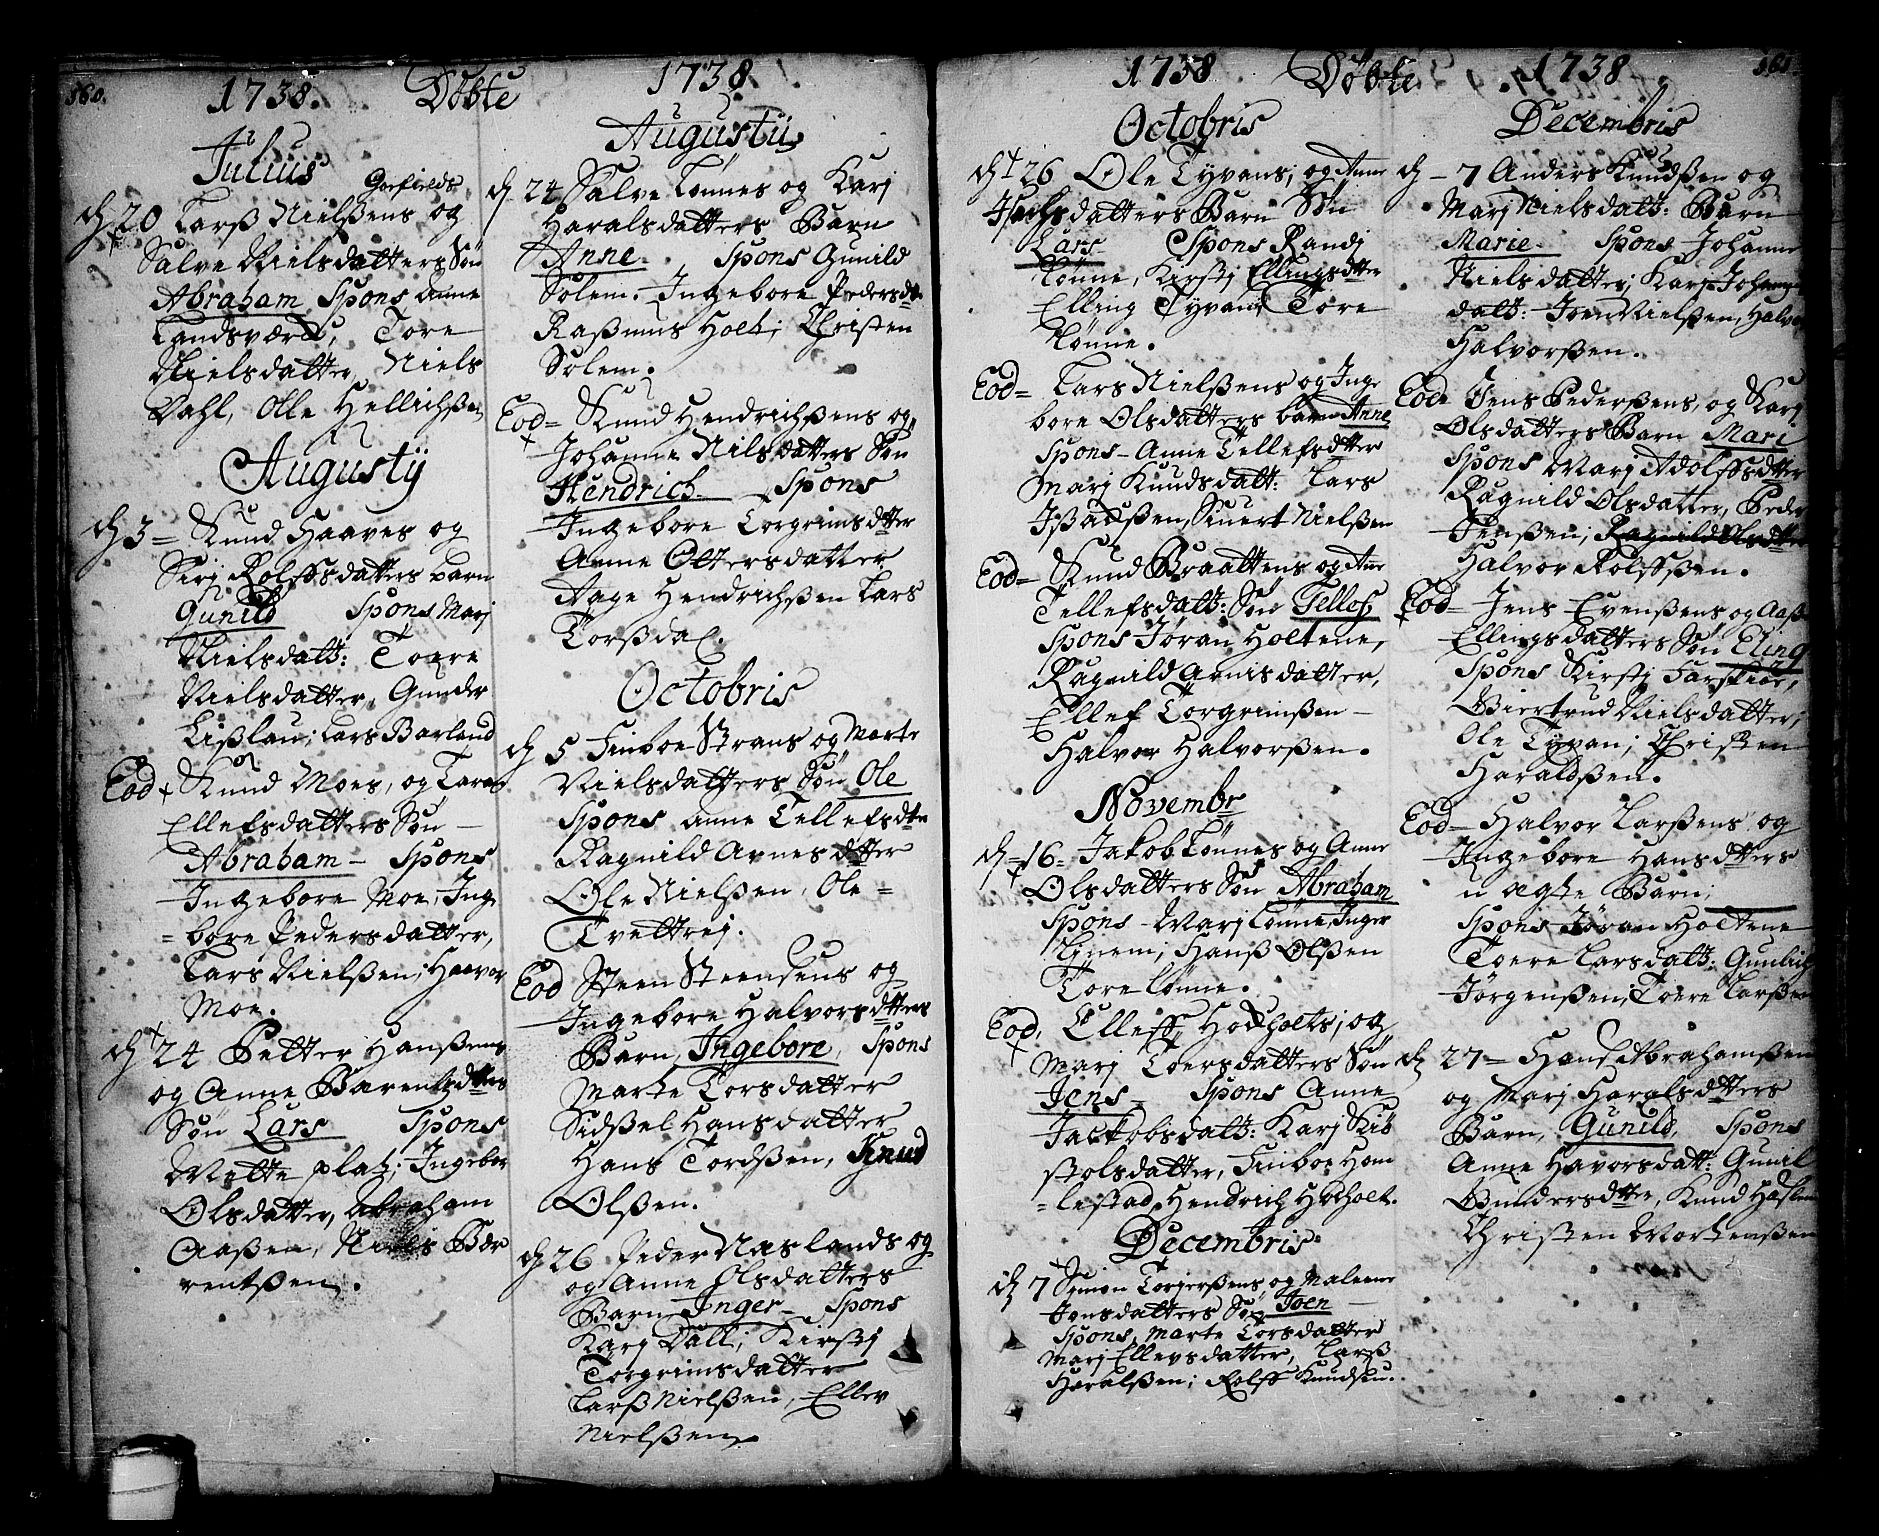 560.
1738. Döbte 1738.
Julius
d 20 Larß Nielßens og
Salve Nielsdatters Søn
Abraham Spons Anne
Landsværd, Tore
Nielsdatter, Niels
Dahl, Olle Hellichßen
Augustÿ
d 3 = Knud Haaves og
Sirj Rolffsdatters barn
Gunild Spons Marj
Nielsdatt: Toere
Nielsdatter, Gunder
Lißlau; Lars Barland
Eod Knud Moes, og Tara
Ellefsdatters Søn
Abraham - Spons
Ingebore Moe, Inge
= bore Pedersdatter,
Lars Nielßen; Haavor
Moe.
d 24 Petter Hanßens
og Anne Barentzdtters
Søn Lars Spons
Mette platz; Ingebor
Olsdatter, Abraham
Aaßen, Niels Bær
rentßen.
Augustÿ
d 24 Salve Tønnes og Karj
Haralsdatters Barn
Anne. Spons Gunild
Solem. Ingebore Pedersdtr
Raßmus Holt; Christen
Solem.
Eod = Knud Hendrichßens og
Johanne Nilsdatters Søn
Hendrich. Spons
Ingebore Torgrimsdtter
Anne Ottersdatter
Aage Hendrichßen Lars
Torßdal.
Octobris
d 5 Finboe Strans og Marte
Nielsdatters Søn Ole
Spons Anne Tellefsdtr
Ragnild Arnesdtter
Ole Nielßen, Ole =
Tvettrej.
Eod Steen Steensens og
Ingebore Halvorsdtters
Barn Ingebore, Spons
Marte Torsdatter
Sidßel Hansdatter
Hans Tordßen, Knud
Olßen.
d 26 Peder Naslands og
og Anne Olsdatters
Barn Inger - Spons
Karj Dall; Kirstj
Torgrimsdatter
Larß Nielßen, Ellev
Nielßen.
1738 Döbte 1738 561.
Octobris
d 26 Ole Tyvans; og Anne
Isachsdatters Barn Søn
Lars Spons Randj
Tønne, Kirstj Ellingsdtter
Elling Tyvant Tore
Tønne.
Eod = Lars Nielßens og Inge
bore Olsdatters barn Anne
Spons - Anne Tellefsdtter
Marj Knudsdatt: Lars
Ißaxßen, Siuert Nielßen
Eod = Knud Braattens og Anne
Tellefsdatt: Søn Tellof
Spons Jøran Holtene,
Ragnild Arnisdatter,
Ellef Torgrimßen -
Halvor Halvorßen.
Novembr
d = 16 = Jakob Tønnes og Anne
Olsdatters Søn Abraham
Spons - Marj Tønne, Inger
Hanß Olßen
Tore Tønne.
Eod. Elleff Hoxholts; og
Marj Toersdatters Søn
Jens - Spons Anne
Jackobsdatt: Karj Kiö
stolsdatter, Finboe Hom
= lestad, Hendrich Hoxholt.
Decembris
d 7 Simon Torjerßens og Maleene
Jonsdatters Søn Joen
Spons, Marte Torsdatter
Marj Ellevsdatter, Larß
Haralßen; Rolff Knudsen.
Decembris
d - 7 Anders Knudßen og
Marj Nielsdatt: Barn
Marie. Spons Johanne
Nielsdatter; Karj Johannes
datt: Joen Nielßen, Halvor
Halvorßen.
Eod. Jens Pederßens, og Karj
Olsdatters Barn Mari
Spons Marj Adolffsdtter
Ragnild Olsdatter, Peder
Jenßen, Ragnild Olsdtter
Halvor Rolffßen.
Eod - Jens Evenßens og Aaße
Ellingsdatters Søn Eling
Spons Kirstj Farstiöe,
Biertrud Nielsdatter;
Ole Tyvan; Christen
Haraldßen.
Eod - Halvor Larßens og
Ingebore Hansdtters
u ægte Barn;
Spons Jøran Holtene
Toere Larsdatt: Gunlich
Jørgenßen; Toere Larßen
d 27 - Hans Abrahamßen
og Marj Haralsdtters
Barn, Gunild, Spons
Anne Havorsdatt: Gunil
Gundersdtter, Knud Haslum
Christen Mortenßen